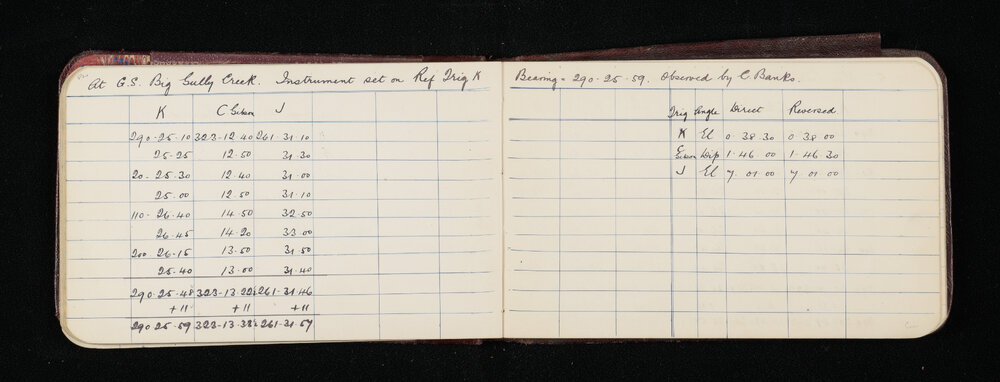 At G.S. Big Gully Creek. Instrument set on Ref Trig K
K C J
290-25-10 323-12-40 261-31-10
25-25 12-50 31-30
20-25-30 12-40 31-00
25-00 12-50 31-10
110-26-40 14-50 32-50
26-45 14-20 33-00
200 26-15 13-50 31-50
25-40 13-00 31-40
290-25-48 323-13-22 261-31-46
+11 +11 +11
290 25-59 323-13-33 261-31-57
Bearing = 290-25-59. Observed by C. Banks.
Trig Angle Direct Reversed
K El 0 38 30 0 38 00
C Dip 1-46 00 1-46 30
J El 7 01 00 7 01 00